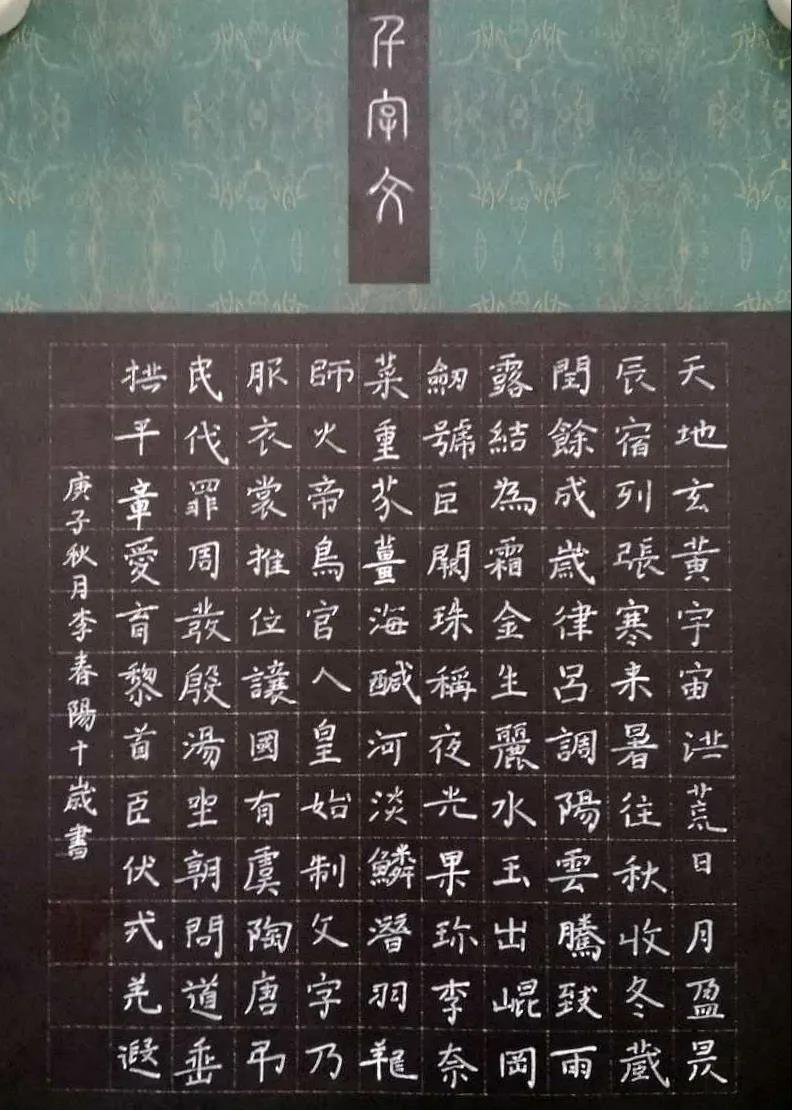 千字文
天地玄黃宇宙洪荒日月盈昃
辰宿列張寒来暑往秋收冬蔵
閏餘成歲律呂調陽雲騰致雨
露結為霜金生麗水玉出崐岡
劒號臣闕珠稱夜光果珎李奈
菜重芥薑海醎河淡鱗潛羽翔
師火帝鳥官人皇始制文字乃
服衣裳推位讓國有虞陶唐弔
民伐罪周發殷湯坐朝問道垂
拱平章愛育黎首臣伏戎羌遐
庚子秋月李春陽十歲書